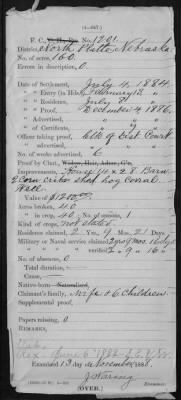 (4—667.)
F. C., No. 1201.
District, North Platte Nebraska
No. of acres, 160.
Errors in description, 0
Date of Settlement, July 4, 1884.
" Entry (in Hd.), February 12 "
" Residence, July 31 "
" Proof, December 4 1886.
" Advertisement,
" of Certificate,
Officer taking proof, Clk of Dist Court
" advertised, "
No. of weeks advertised, 6
Proof by Clmt.
Improvements, House 14 x 28 Barn
2 Corn cribs shed hog corral
Well
Value of $1200.00
Acres broken, 40
" in crop, 40. No. of seasons, 1
Kind of crops, not stated
Residence claimed, 2 Yrs. 9 Mos. 21 Days.
Military or Naval service claimed,
" verified, 2 " 9 " 16 "
No. of absences, 0
Total duration,
Cause,
Native-born
Claimant's family, Wife & 6 Children
Supplemental proof,
Papers missing, 0
REMARKS,
Examined 13 day of November, 1888.
Examiner.
(OVER.)